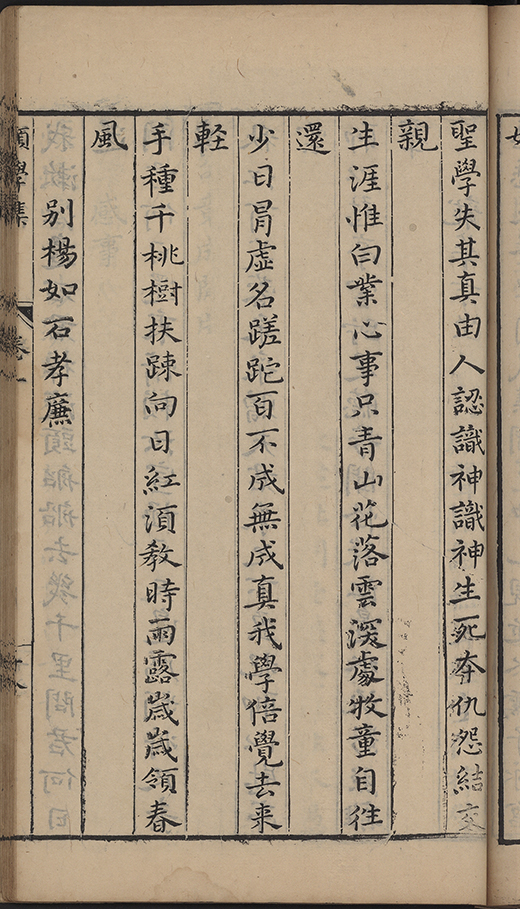 聖學失其真由人認識神識神生死夲仇怨結交
親
生涯惟白業心事只青山花落雲深處牧童自往
還
少日冐虛名蹉跎百不成無成真我學倍覺去來
軽
手種千桃樹扶踈向日紅湏教時雨露歲歲領春
風
别楊如石孝廉
學集
卷